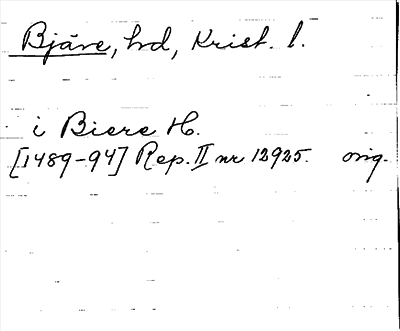 Bjäre, hd, Krist. l.
i Biere H.
[1489-94] Rep. II nr 12925. orig.